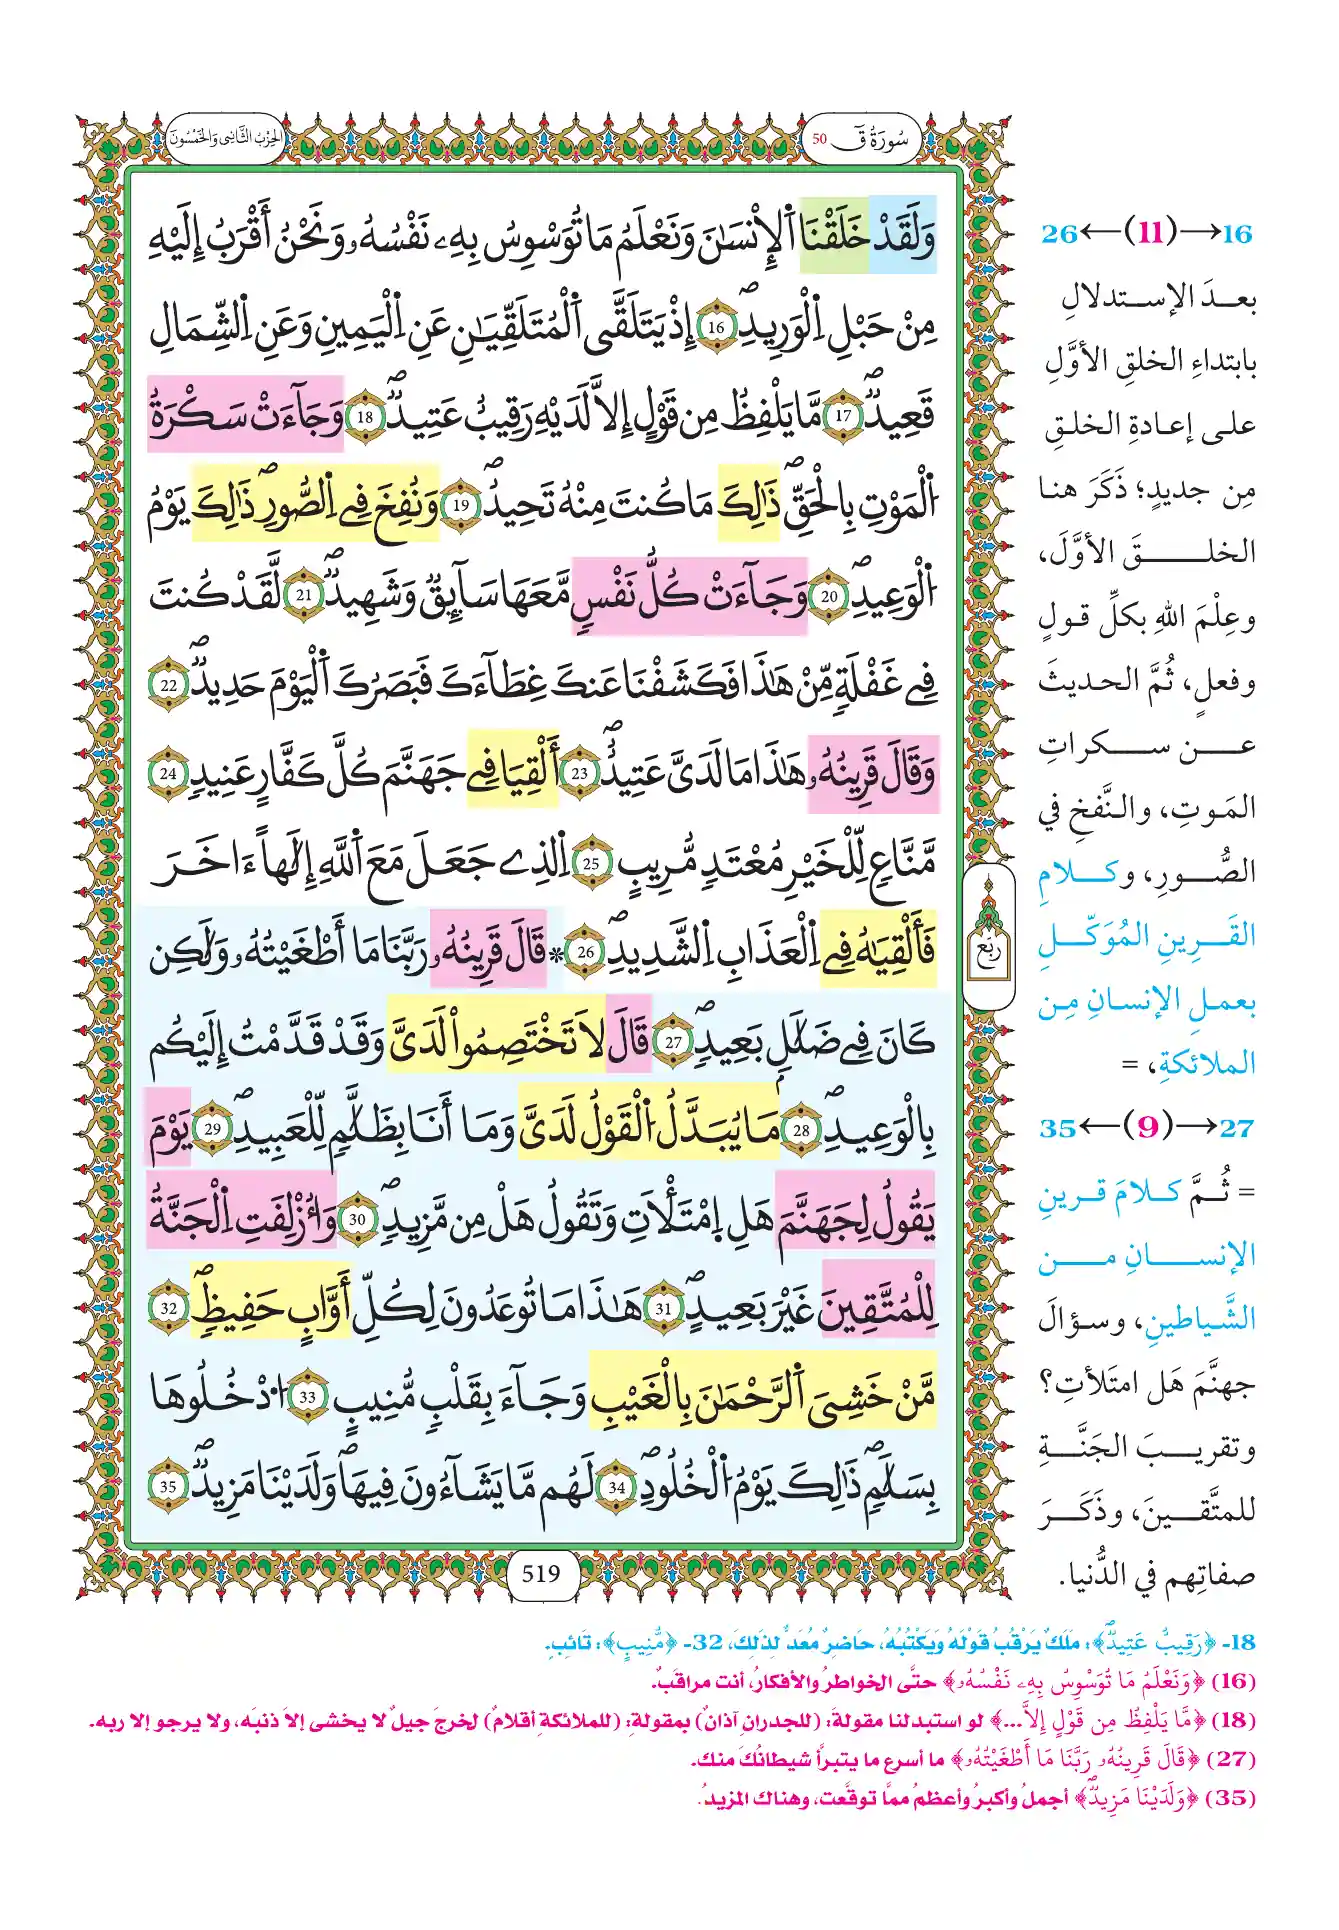 سُورَةُ قٓ 50
الحِزْبُ الثَّانِي وَالخَمْسُونَ
وَلَقَدْ خَلَقْنَا اَ۬لِانسَٰنَ وَنَعْلَمُ مَا تُوَسْوِسُ بِهِۦ نَفْسُهُۥ وَنَحْنُ أَقْرَبُ إِلَيْهِ
مِنْ حَبْلِ اِ۬لْوَرِيدِۖ 16 إِذْ يَتَلَقَّى اَ۬لْمُتَلَقِّيَٰنِ عَنِ اِ۬لْيَمِينِ وَعَنِ اِ۬لشِّمَالِ
قَعِيدٞۖ 17 مَّا يَلْفِظُ مِن قَوْلٍ إِلاَّ لَدَيْهِ رَقِيبٌ عَتِيدٞۖ 18 وَجَآءَتْ سَكْرَةُ
اُ۬لْمَوْتِ بِالْحَقِّۖ ذَٰلِكَ مَا كُنتَ مِنْهُ تَحِيدُۖ 19 وَنُفِخَ فِي اِ۬لصُّورِۖ ذَٰلِكَ يَوْمُ
اُ۬لْوَعِيدِۖ 20 وَجَآءَتْ كُلُّ نَفْسٖ مَّعَهَا سَآئِقٞ وَشَهِيدٞۖ 21 لَّقَدْ كُنتَ
فِي غَفْلَةٖ مِّنْ هَٰذَا فَكَشَفْنَا عَنكَ غِطَآءَكَ فَبَصَرُكَ اَ۬لْيَوْمَ حَدِيدٞۖ 22
وَقَالَ قَرِينُهُۥ هَٰذَا مَا لَدَيَّ عَتِيدٌۖ 23 أَلْقِيَا فِي جَهَنَّمَ كُلَّ كَفَّارٍ عَنِيدٖ 24
مَّنَّاعٖ لِّلْخَيْرِ مُعْتَدٖ مُّرِيبٍ 25 اِ۬لذِي جَعَلَ مَعَ اَ۬للَّهِ إِلَٰهاً اٰخَرَ
فَأَلْقِيَٰهُ فِي اِ۬لْعَذَابِ اِ۬لشَّدِيدِۖ 26 ۞ قَالَ قَرِينُهُۥ رَبَّنَا مَا أَطْغَيْتُهُۥ وَلَٰكِن
كَانَ فِي ضَلَٰلِۢ بَعِيدٖۖ 27 قَالَ لَا تَخْتَصِمُواْ لَدَيَّ وَقَدْ قَدَّمْتُ إِلَيْكُم
بِالْوَعِيدِۖ 28 مَا يُبَدَّلُ اُ۬لْقَوْلُ لَدَيَّ وَمَا أَنَا بِظَلَّٰمٖ لِّلْعَبِيدِۖ 29 يَوْمَ
يَقُولُ لِجَهَنَّمَ هَلِ اِ۪مْتَلَأْتِ وَتَقُولُ هَلْ مِن مَّزِيدٖۖ 30 وَأُزْلِفَتِ اِ۬لْجَنَّةُ
لِلْمُتَّقِينَ غَيْرَ بَعِيدٍۖ 31 هَٰذَا مَا تُوعَدُونَ لِكُلِّ أَوَّابٍ حَفِيظٖۖ 32
مَّنْ خَشِيَ اَ۬لرَّحْمَٰنَ بِالْغَيْبِ وَجَآءَ بِقَلْبٖ مُّنِيبٍ 33 اُ۟دْخُلُوهَا
بِسَلَٰمٖۖ ذَٰلِكَ يَوْمُ اُ۬لْخُلُودِۖ 34 لَهُم مَّا يَشَآءُونَ فِيهَاۖ وَلَدَيْنَا مَزِيدٞۖ 35
رُبُع
519
16→(11)←26
بعدَ الإستدلالِ
بابتداءِ الخلقِ الأوَّلِ
على إعادةِ الخلقِ
مِن جديدٍ؛ ذَكَرَ هنا
الخلقَ الأوَّلَ،
وعِلْمَ اللهِ بكلِّ قولٍ
وفعلٍ، ثُمَّ الحديثَ
عن سكراتِ
المَوتِ، والنَّفخِ في
الصُّورِ، وكلامِ
القَرينِ المُوَكّلِ
بعملِ الإنسانِ مِن
الملائكةِ، =
27→(9)←35
= ثُمَّ كلامَ قرينِ
الإنسانِ من
الشَّياطينِ، وسؤالَ
جهنَّمَ هَل امتَلأتِ؟
وتقريبَ الجَنَّةِ
للمتَّقينَ، وذَكَرَ
صفاتِهم في الدُّنيا.
18- ﴿رَقِيبٌ عَتِيدٞۖ﴾: مَلَكٌ يَرْقُبُ قَوْلَهُ وَيَكْتُبُهُ، حَاضِرٌ مُعَدٌّ لِذَلِكَ، 32- ﴿مُّنِيبٍ﴾: تَائِبٍ.
(16) ﴿وَنَعْلَمُ مَا تُوَسْوِسُ بِهِۦ نَفْسُهُۥ﴾ حتَّى الخواطرُ والأفكارُ، أنت مراقَبٌ.
(18) ﴿مَّا يَلْفِظُ مِن قَوْلٍ إِلاَّ...﴾ لو استبدلنا مقولةَ: (للجدرانِ آذانٌ) بمقولةِ: (للملائكةِ أقلامٌ) لخرجَ جيلٌ لا يخشى إلا ذنبَه، ولا يرجو إلا ربه.
(27) ﴿قَالَ قَرِينُهُۥ رَبَّنَا مَا أَطْغَيْتُهُۥ﴾ ما أسرع ما يتبرأُ شيطانُكَ منك.
(35) ﴿وَلَدَيْنَا مَزِيدٞۖ﴾ أجملُ وأكبرُ وأعظمُ ممَّا توقَّعت، وهناك المزيدُ.